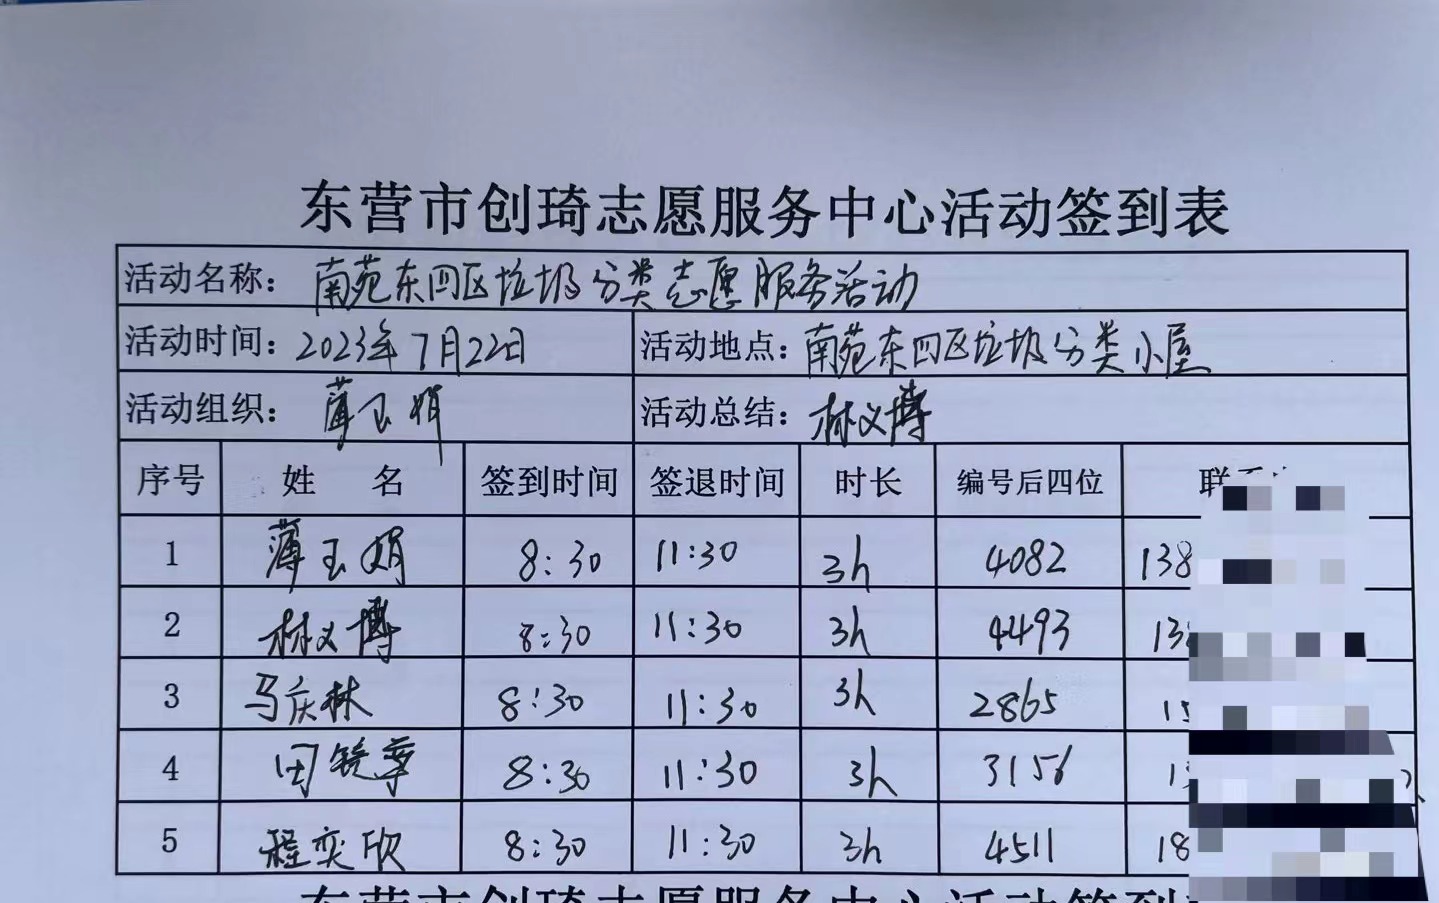 东营市创琦志愿服务中心活动签到表
活动名称： 南苑东四区垃圾分类志愿服务活动
活动时间： 2023年7月22日 活动地点： 南苑东四区垃圾分类小屋
活动组织： 薄玉娟 活动总结： 林义博
序号 姓名 签到时间 签退时间 时长 编号后四位 联
1 薄玉娟 8:30 11:30 3h 4082 138
2 林义博 8:30 11:30 3h 4493 13
3 马庆林 8:30 11:30 3h 2865 15
4 田 8:30 11:30 3h 3156 1
5 程奕欣 8:30 11:30 3h 4511 18
东营市创琦志愿服务中心活动签到